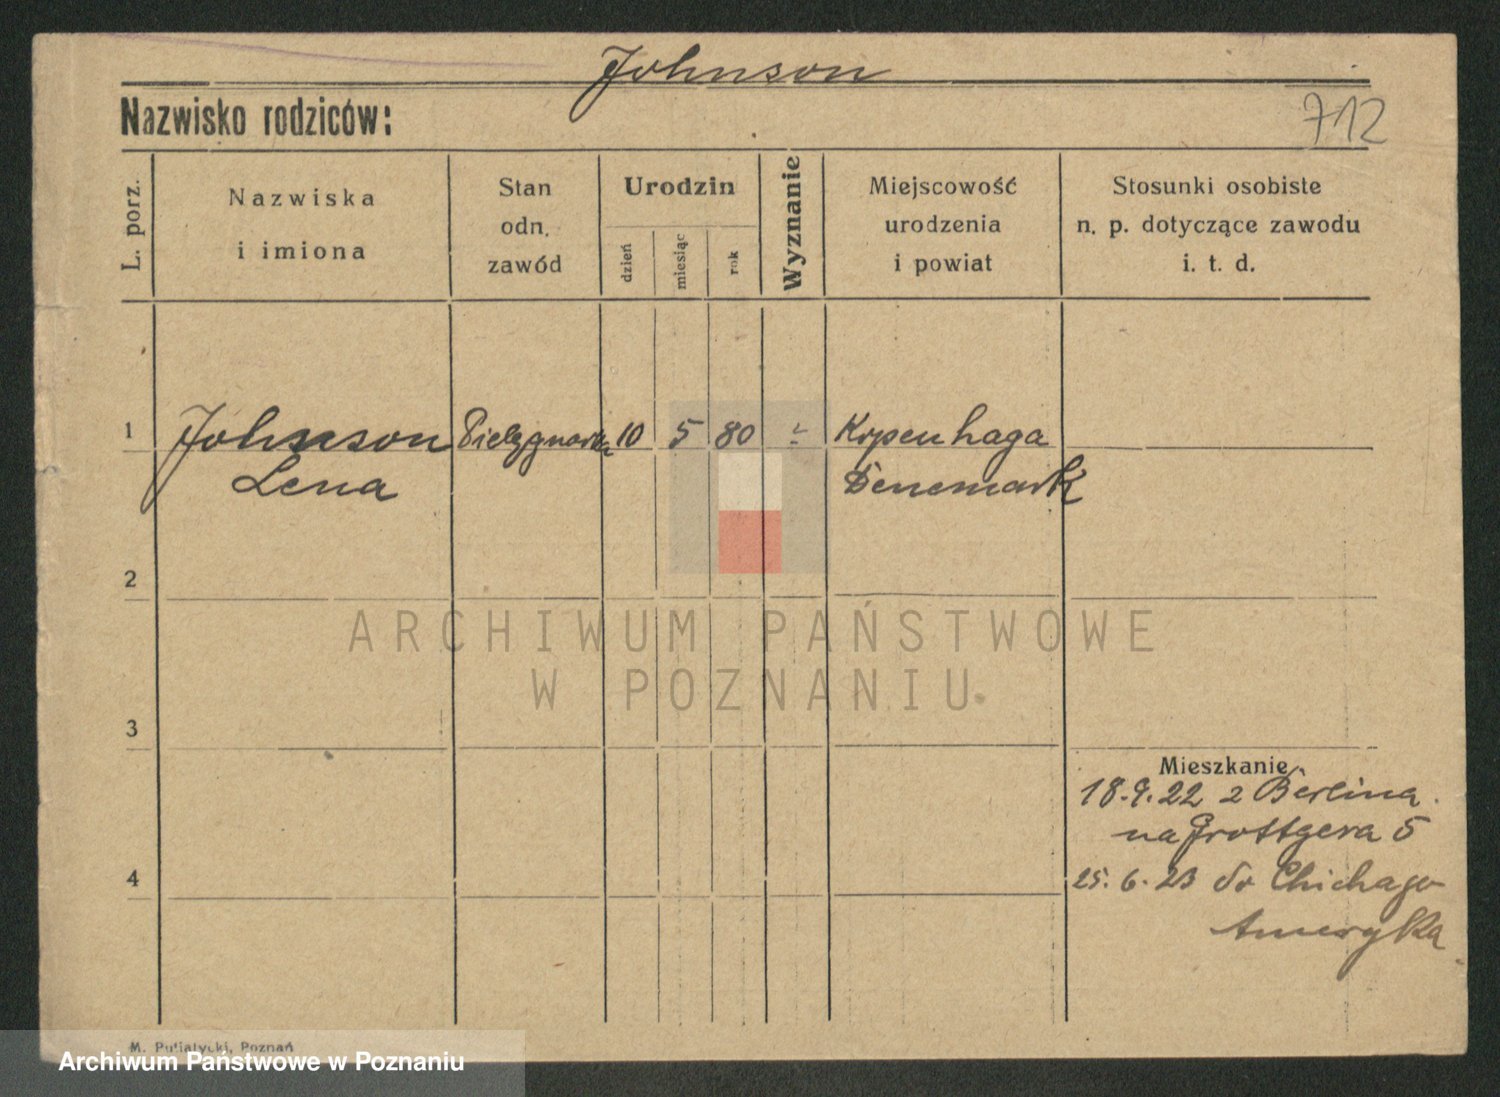 Johnson
Nazwisko rodziców:
712
L. porz.
Nazwiska
i imiona
Stan
odn.
zawód
Urodzin
dzień
miesiąc
rok
Wyznanie
Miejscowość
urodzenia
i powiat
Stosunki osobiste
n. p. dotyczące zawodu
i. t. d.
1
Johnson
Lena
Pielęgnarka
10
5
80
Kopenhaga
Denemark
2
ARCHIWUM PAŃSTWOWE
W POZNANIU
3
Mieszkanie
18.9.22 z Berlina
na Grottgera 5
4
25.6.23 do Chichago
Ameryka
M. Putiatycki, Poznań
Archiwum Państwowe w Poznaniu